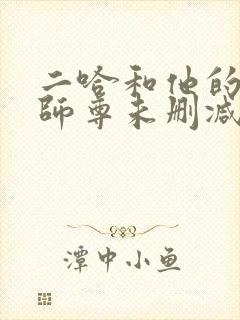 二哈和他的
師尊未删减
潭中小鱼